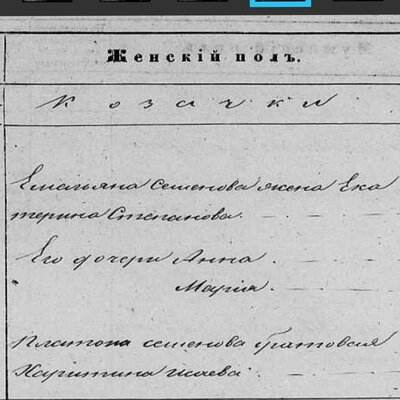 Женскій полъ.
Козачки
Емельяна Семенова жена Ека
терина Степанова.
Его дочери Анна.
Марія.
Платона Семенова
Харитина